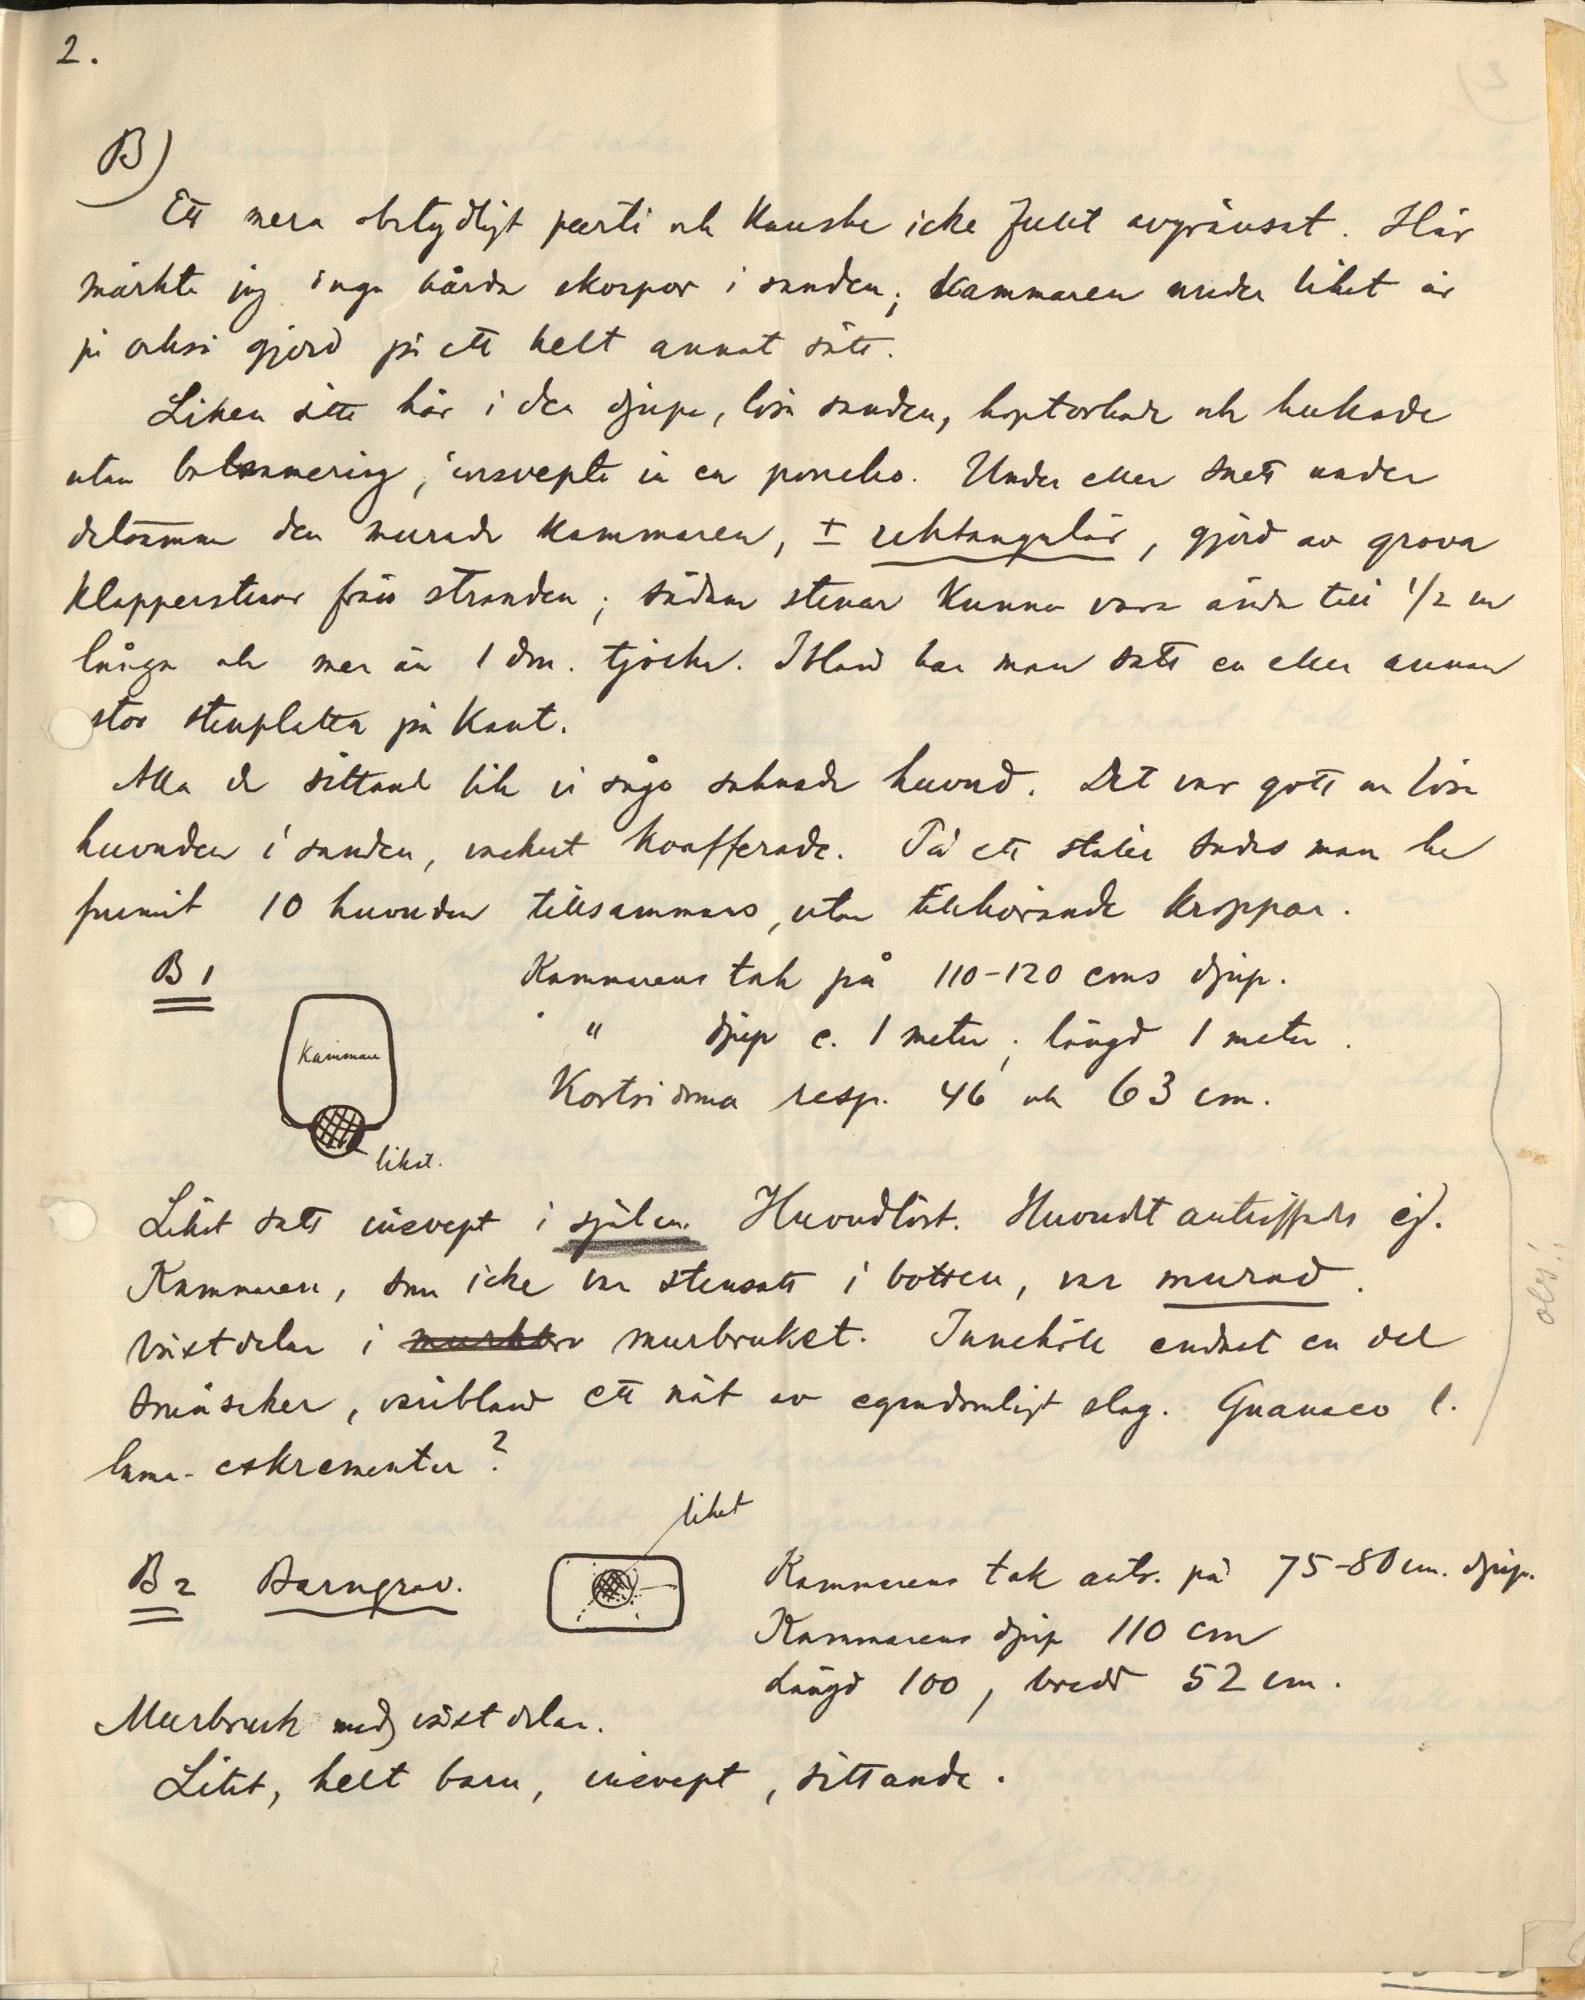 2.
B)
Ett mera obetydligt parti och kanske icke fullt avgränsat. Här
märkte jag inga hårda skorpor i sanden; kammaren under liket är
ju också gjord på ett helt annat sätt.
Liken sitta här i den djupa, lösa sanden, hoptorkade och hukade
utan balsamering, insvepta i en poncho. Under eller snett under
detsamma den murade kammaren, ± rektangulär, gjord av grova
klapperstenar från stranden; sådana stenar kunna vara ända till 1/2 m
långa och mer än 1 dm. tjocka. Ibland har man satt en eller annan
stor stenplatta på kant.
Alla de sittande lik vi sågo saknade huvud. Det var gott om lösa
huvuden i sanden, vackert koafferade. På ett ställe sades man ha
funnit 10 huvuden tillsammans, utan tillhörande kroppar.
B 1
Kammarens tak på 110-120 cms djup.
" djup c. 1 meter; längd 1 meter.
Kortsidorna resp. 46 och 63 cm.
Kammare
liket.
Liket satt insvept i själen. Huvudlöst. Huvudet anträffades ej.
Kammaren, som icke var stensatt i botten, var murad.
Växtdelar i murbruket. Innehöll endast en del
småsaker, varibland ett nät av egendomligt slag. Guanaco l.
lama-exkrementer?
obs!
liket
B 2 Barngrav.
Kammarens tak antr. på 75-80 cm. djup.
Kammarens djup 110 cm
Längd 100, bredd 52 cm.
Murbruk med växtdelar.
Litet, helt barn, insvept, sittande.